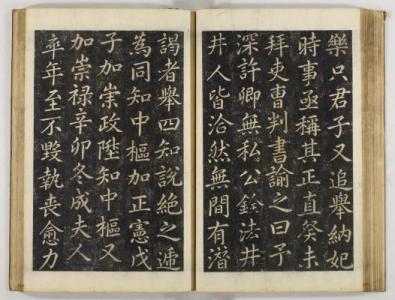 樂只君子又追舉納妃
時事亟稱其正直癸未
拜吏曹判書諭之曰予
深許卿無私公銓法井
井人皆洽然無間有潛
謁者舉四知說絶之遞
為同知中樞加正憲戊
子加崇政陞知中樞又
加崇禄辛卯冬成夫人
卒年至不毀執喪愈力